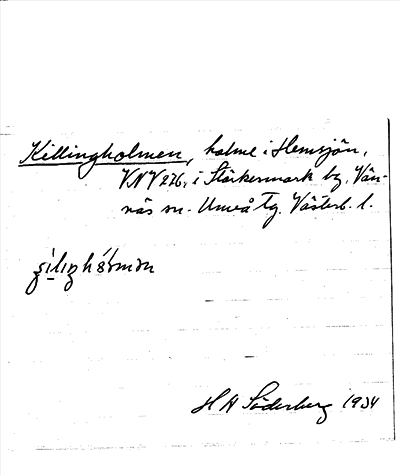 Killingholmen, holme i Hemsjön,
VNV 276, i Stärkesmark by, Vän-
näs sn. Umeå tg. Västerb. l.
H A Söderberg 1934